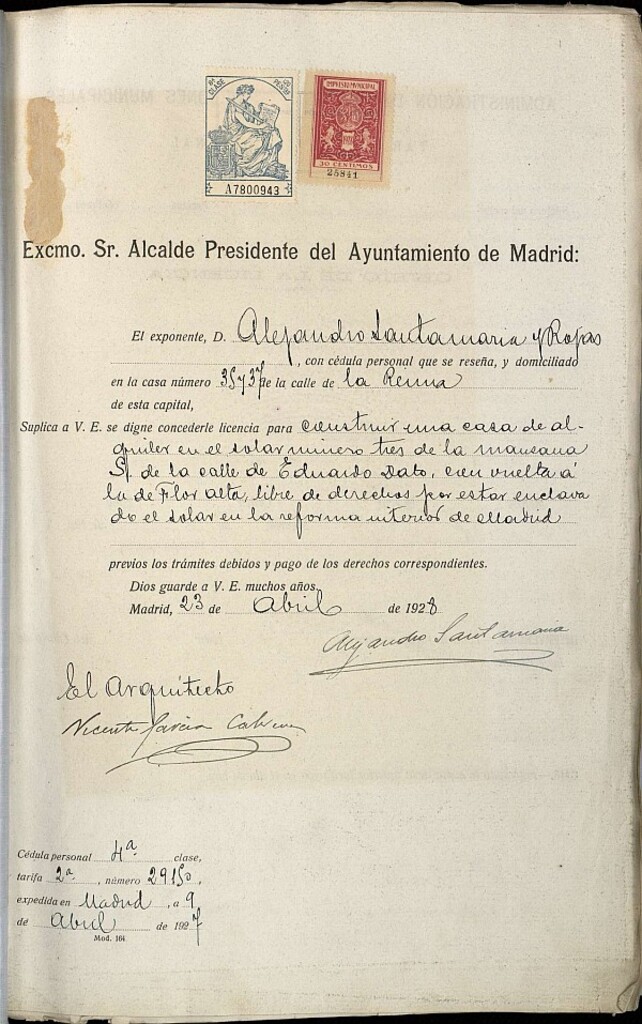 8ª CLASE
A7800943
IMPUESTO MUNICIPAL
30 CENTIMOS
25841
Excmo. Sr. Alcalde Presidente del Ayuntamiento de Madrid:
El exponente, D. Alejandro Santamaria y Rojas
, con cédula personal que se reseña, y domiciliado
en la casa número 35 y 37 de la calle de la Reina
de esta capital,
Suplica a V. E. se digne concederle licencia para construir una casa de al-
quiler en el solar número tres de la manzana
S. de la calle de Eduardo Dato, con vuelta á
la de Flor alta, libre de derechos por estar enclava
do el solar en la reforma interior de Madrid
previos los trámites debidos y pago de los derechos correspondientes.
Dios guarde a V. E. muchos años.
Madrid, 23 de Abril de 1928
Alejandro Santamaria
El Arquitecto
Vicente Garcia Cabrera
Cédula personal 4ª clase,
tarifa 2ª, número 29150,
expedida en Madrid, a 9
de Abril de 1927
Mod. 164